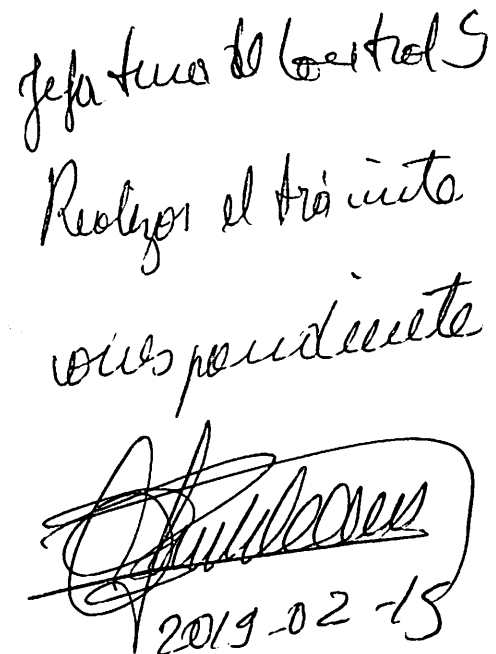 Jefatura de Control S
Realizar el trámite
correspondiente
2019-02-15